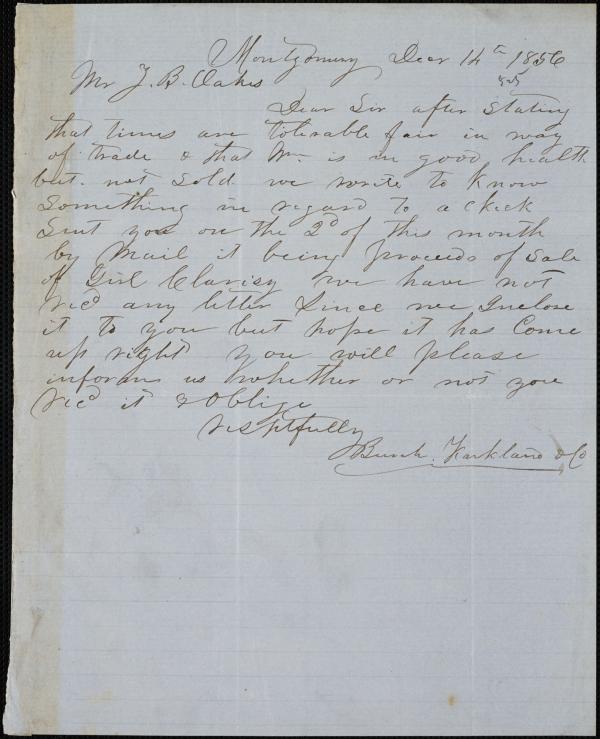 Montgomery Decr 14th 1856
Mr Z. B. Oakes
Dear Sir after stating
that times are tolerable fair in way
of trade & that Wm. is in good health
but not sold we write to know
something in regard to a check
Sent you on the 2d of this month
by Mail it being proceeds of Sale
of Girl Clarisy we have not
recd any letter Since we Inclose
it to you but hope it has Come
up right you will please
inform us whether or not you
recd it & Oblige
resptfully
Burch. Kirkland & Co